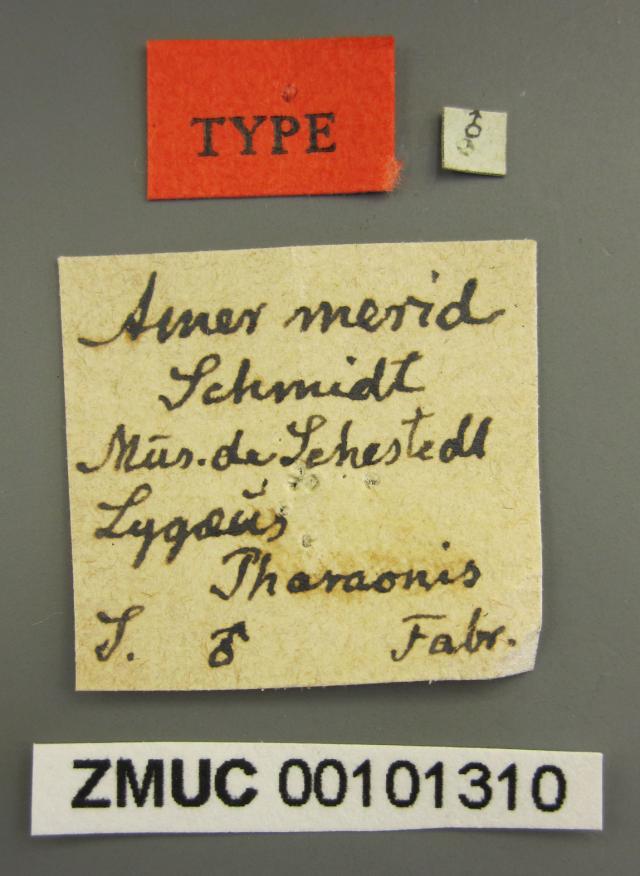 TYPE
♂
Amer merid
Schmidt
Mus. de Sehestedt
Lygæus
Pharaonis
S. ♂ Fabr.
ZMUC 00101310